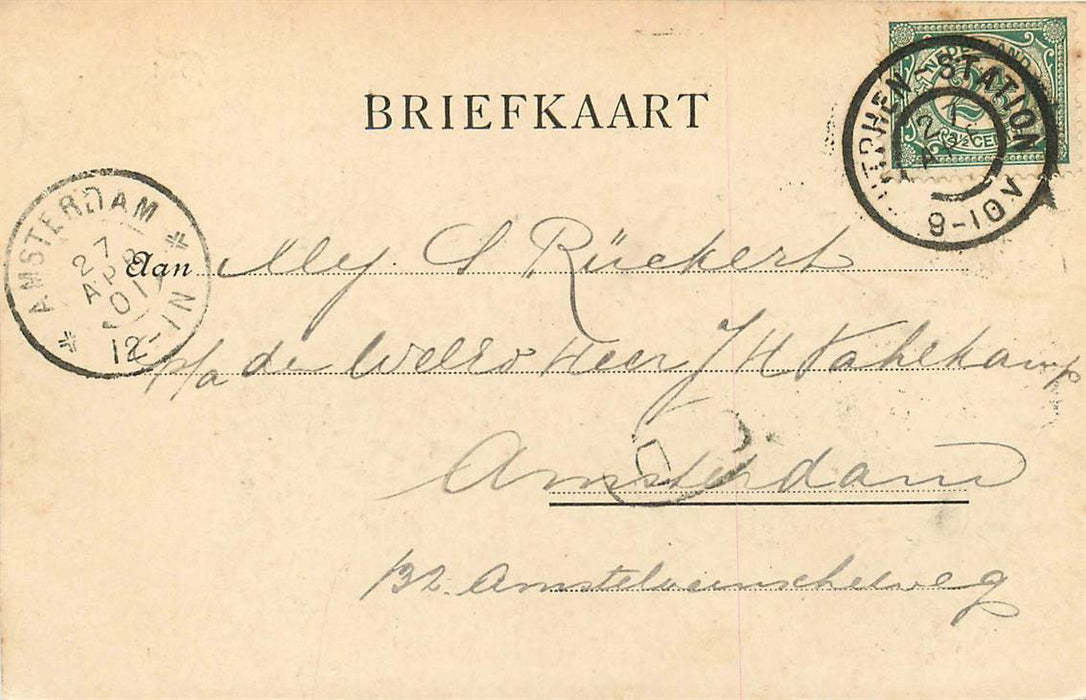 BRIEFKAART
NEDERLAND
2½ CENT
STATION
27
8-10V
AMSTERDAM
27
APR
01
12-1N
Aan Mej. S Rückert
p/a den WelEd Heer J H Vahlkamp
Amsterdam
132 Amstelveenscheweg